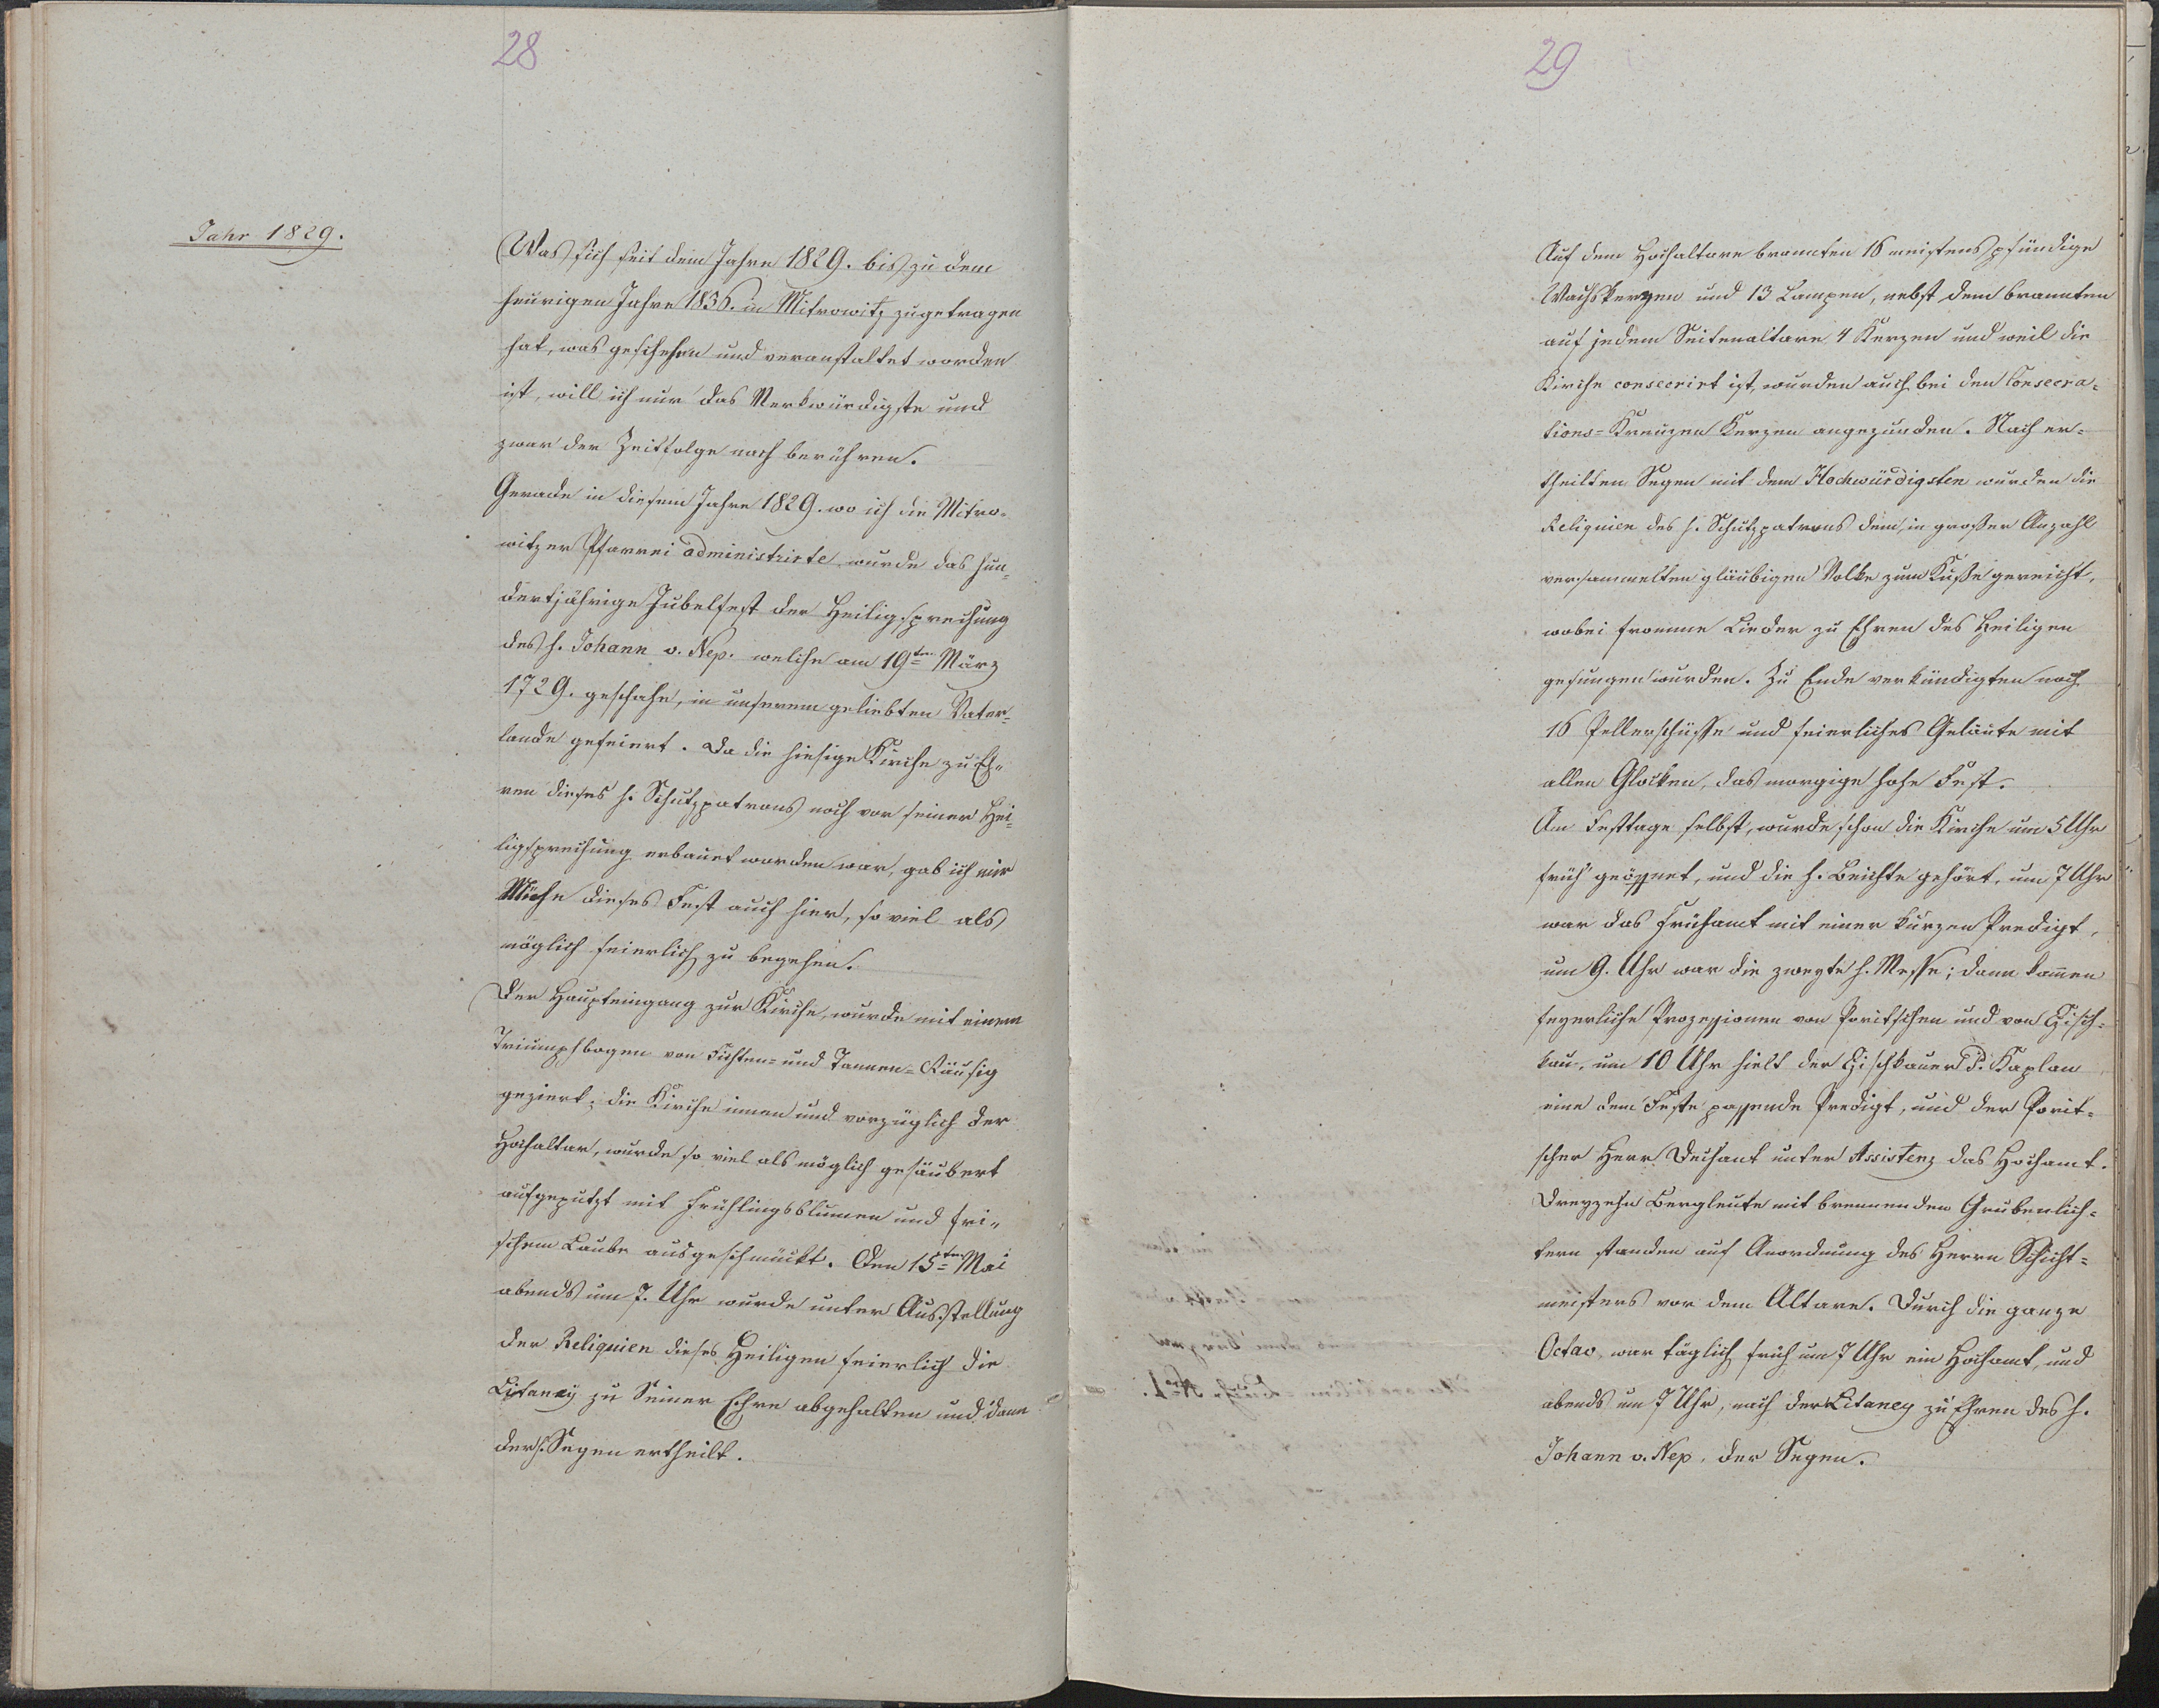 28
Jahr 1829.
Was sich seit dem Jahre 1829. bis zu dem
heurigen Jahre 1836. in Mitrowitz zugetragen
hat, was geschehen und veranstaltet worden
ist, will ich nur das Merkwürdigste und
zwar der Zeitfolge nach berühren.
Gerade in diesem Jahre 1829. wo ich die Mitro-
witzer Pfarrei administrirte wurde das hun-
dertjährige Jubelfest der Heiligsprechung
des h. Johann v. Nep. welche am 19ten März
1729. geschahe, in unserem geliebten Vater-
lande gefeiert. Da die hiesige Kirche zu Eh-
ren dieses h. Schutzpatrons noch vor seiner Hei-
ligsprechung erbauet worden war, gab ich mir
Mühe dieses Fest auch hier, so viel als
möglich feierlich zu begehen.
Der Haupteingang zur Kirche, wurde mit einem
Triumphbogen von Fichten- und Tannen-Räusig
geziert; die Kirche innen und vorzüglich der
Hochaltar, wurde so viel als möglich gesäubert
aufgeputzt mit Frühlingsblumen und fri-
schem Laube ausgeschmückt. Den 15ten Mai
abends um 7. Uhr wurde unter Ausstellung
der Reliquien dieses Heiligen feierlich die
Litaney zu Seiner Ehre abgehalten und dann
der h. Segen ertheilt.
29
Auf dem Hochaltare brannten 16 meistens pfündige
Wachskerzen und 13 Lampen, nebst dem brannten
auf jedem Seitenaltare 4 Kerzen und weil die
Kirche consecrirt ist, wurden auch bei den Consecra-
tions-Kreuzen Kerzen angezunden. Nach er-
theilten Segen mit dem Hochwürdigsten wurden die
Reliquien des h. Schutzpatrons dem, in großer Anzahl
versammelten gläubigen Volke zum Kuße gereicht,
wobei fromme Lieder zu Ehren des Heiligen
gesungen wurden. Zu Ende verkündigten noch
16 Pellerschüsse und feierliches Geläute mit
allen Glocken, das morgige hohe Fest.
Am Festtage selbst, wurde schon die Kirche um 5 Uhr
früh geöffnet, und die h. Beichte gehört, um 7 Uhr
war das Frühamt mit einer kurzen Predigt,
um 9. Uhr war die zweyte h. Messe; dann kamen
feyerliche Prozessionen von Poritschen und von Zisch-
kau, um 10 Uhr hielt der Zischkauer P. Kaplan
eine dem Feste passende Predigt, und der Porit-
scher Herr Dechant unter Assistenz das Hochamt.
Dreyzehn Bergleute mit brennenden Grubenlich-
tern standen auf Anordnung des Herrn Schicht-
meisters vor dem Altare. Durch die ganze
Octav, war täglich früh um 7 Uhr ein Hochamt, und
abends um 7 Uhr, nach der Litaney zu Ehren des h.
Johann v. Nep. der Segen.